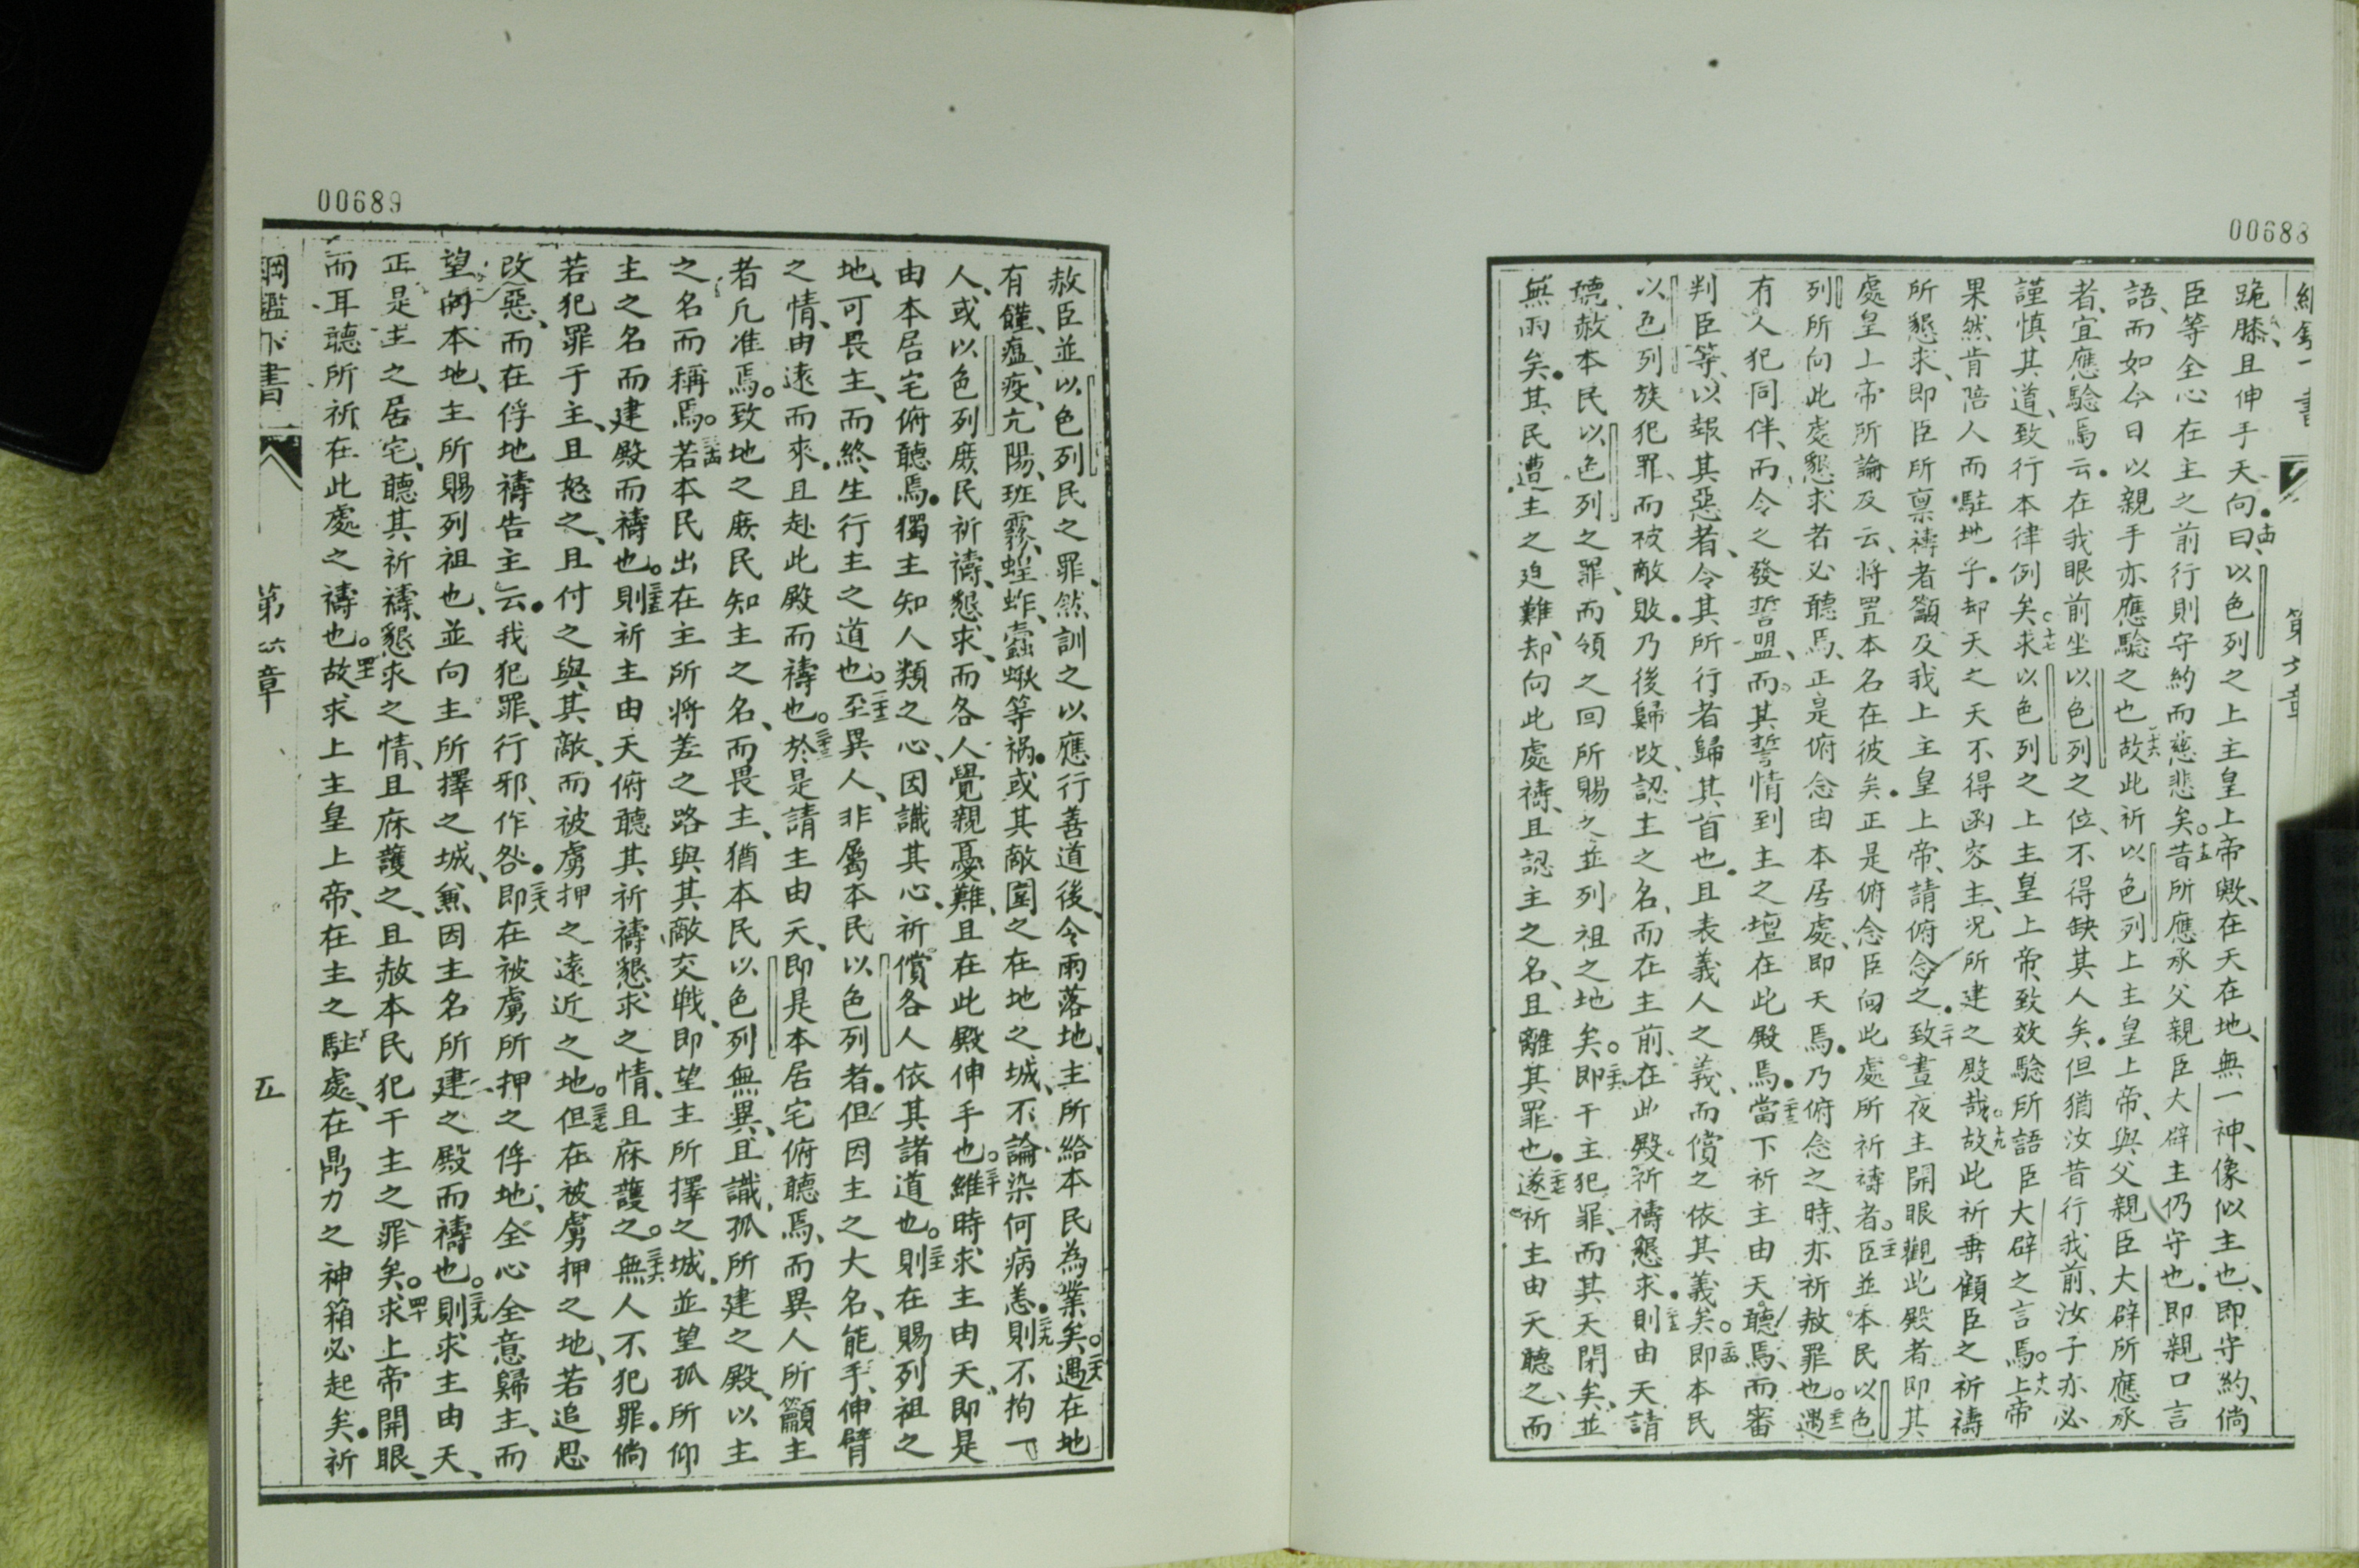 00688
第六章
跪膝、且伸手天向。曰、十四以色列之上主皇上帝歟、在天在地、無一神、像似主也、即守約、倘
臣等全心在主之前行則守約而慈悲矣。十五昔所應承父親臣大辟主仍守也。即親口言
語、而如今日以親手亦應驗之也。十六故此祈以色列上主皇上帝、與父親臣大辟所應承
者、宜應驗焉云。在我眼前坐以色列之位、不得缺其人矣。但猶汝昔行我前、汝子亦必
謹慎其道、致行本律例矣。十七求以色列之上主皇上帝、致效驗所語臣大辟之言焉。十八上帝
果然肯陪人而駐地乎。却天之天不得函容主、况所建之殿哉。十九故此祈垂顧臣之祈禱
所懇求、即臣所禀禱者籲及我上主皇上帝、請俯念之。二十致晝夜主開眼觀此殿者、即其
處皇上帝所論及云、將置本名在彼矣。正是俯念臣向此處所祈禱者。二一臣並本民以色
列所向此處懇求者必聽焉、正是俯念由本居處、即天焉。乃俯念之時、亦祈赦罪也。二二遇
有人犯同伴、而令之發誓盟、而其誓情到主之壇在此殿焉。二三當下祈主由天聽焉、而審
判臣等、以報其惡者、令其所行者歸其首也。且表義人之義、而償之依其義矣。二四即本民
以色列族犯罪、而被敵敗。乃後歸改、認主之名、而在主前、在此殿祈禱懇求。二五則由天請
聽、赦本民以色列之罪、而領之回所賜之並列祖之地矣。二六即干主犯罪、而其天閉矣、並
無雨矣。其民遭主之迫難、却向此處禱、且認主之名、且離其罪也。二七遂祈主由天聽之、而
00689
赦臣並以色列民之罪、然訓之以應行善道後、令雨落地、主所給本民為業矣。二八遇在地
有饉、瘟、疫、亢陽、班霧、蝗、蚱、蠧、蝋等禍。或其敵圍之在地之城、不論染何病恙。二九則不拘一
人、或以色列庶民祈禱、懇求、而各人覺親憂難、且在此殿伸手也。三十維時求主由天、即是
由本居宅俯聽焉。獨主知人類之心、因識其心、祈償各人依其諸道也。三一則在賜列祖之
地、可畏主、而終生行主之道也。三二至異人、非屬本民以色列者。但因主之大名、能手、伸臂
之情、由遠而來、且赴此殿而禱也。三三於是請主由天、即是本居宅俯聽焉、而異人所籲主
者凡准焉。致地之庶民知主之名、而畏主、猶本民以色列無異、且識孤所建之殿、以主
之名而稱焉。三四若本民出在主所將差之路與其敵交戰、即望主所擇之城、並望孤所仰
主之名而建殿而禱也。三五則祈主由天俯聽其祈禱懇求之情、且庥護之。三六無人不犯罪。倘
若犯罪于主、且怒之、且付之與其敵、而被虜押之遠近之地。三七但在被虜押之地、若追思
改惡、而在俘地禱告主、云。我犯罪、行邪、作咎。三八即在被虜所押之俘地、全心全意歸主、而
望向本地、主所賜列祖也、並向主所擇之城、兼因主名所建之殿而禱也。三九則求主由天、
正是主之居宅、聽其祈禱、懇求之情、且庥護之、且赦本民犯干主之罪矣。四十求上帝開眼、
而耳聽所祈在此處之禱也。四一故求上主皇上帝、在主之駐處、在鼎力之神箱必起矣。祈
綱鑑亦書
第六章
五